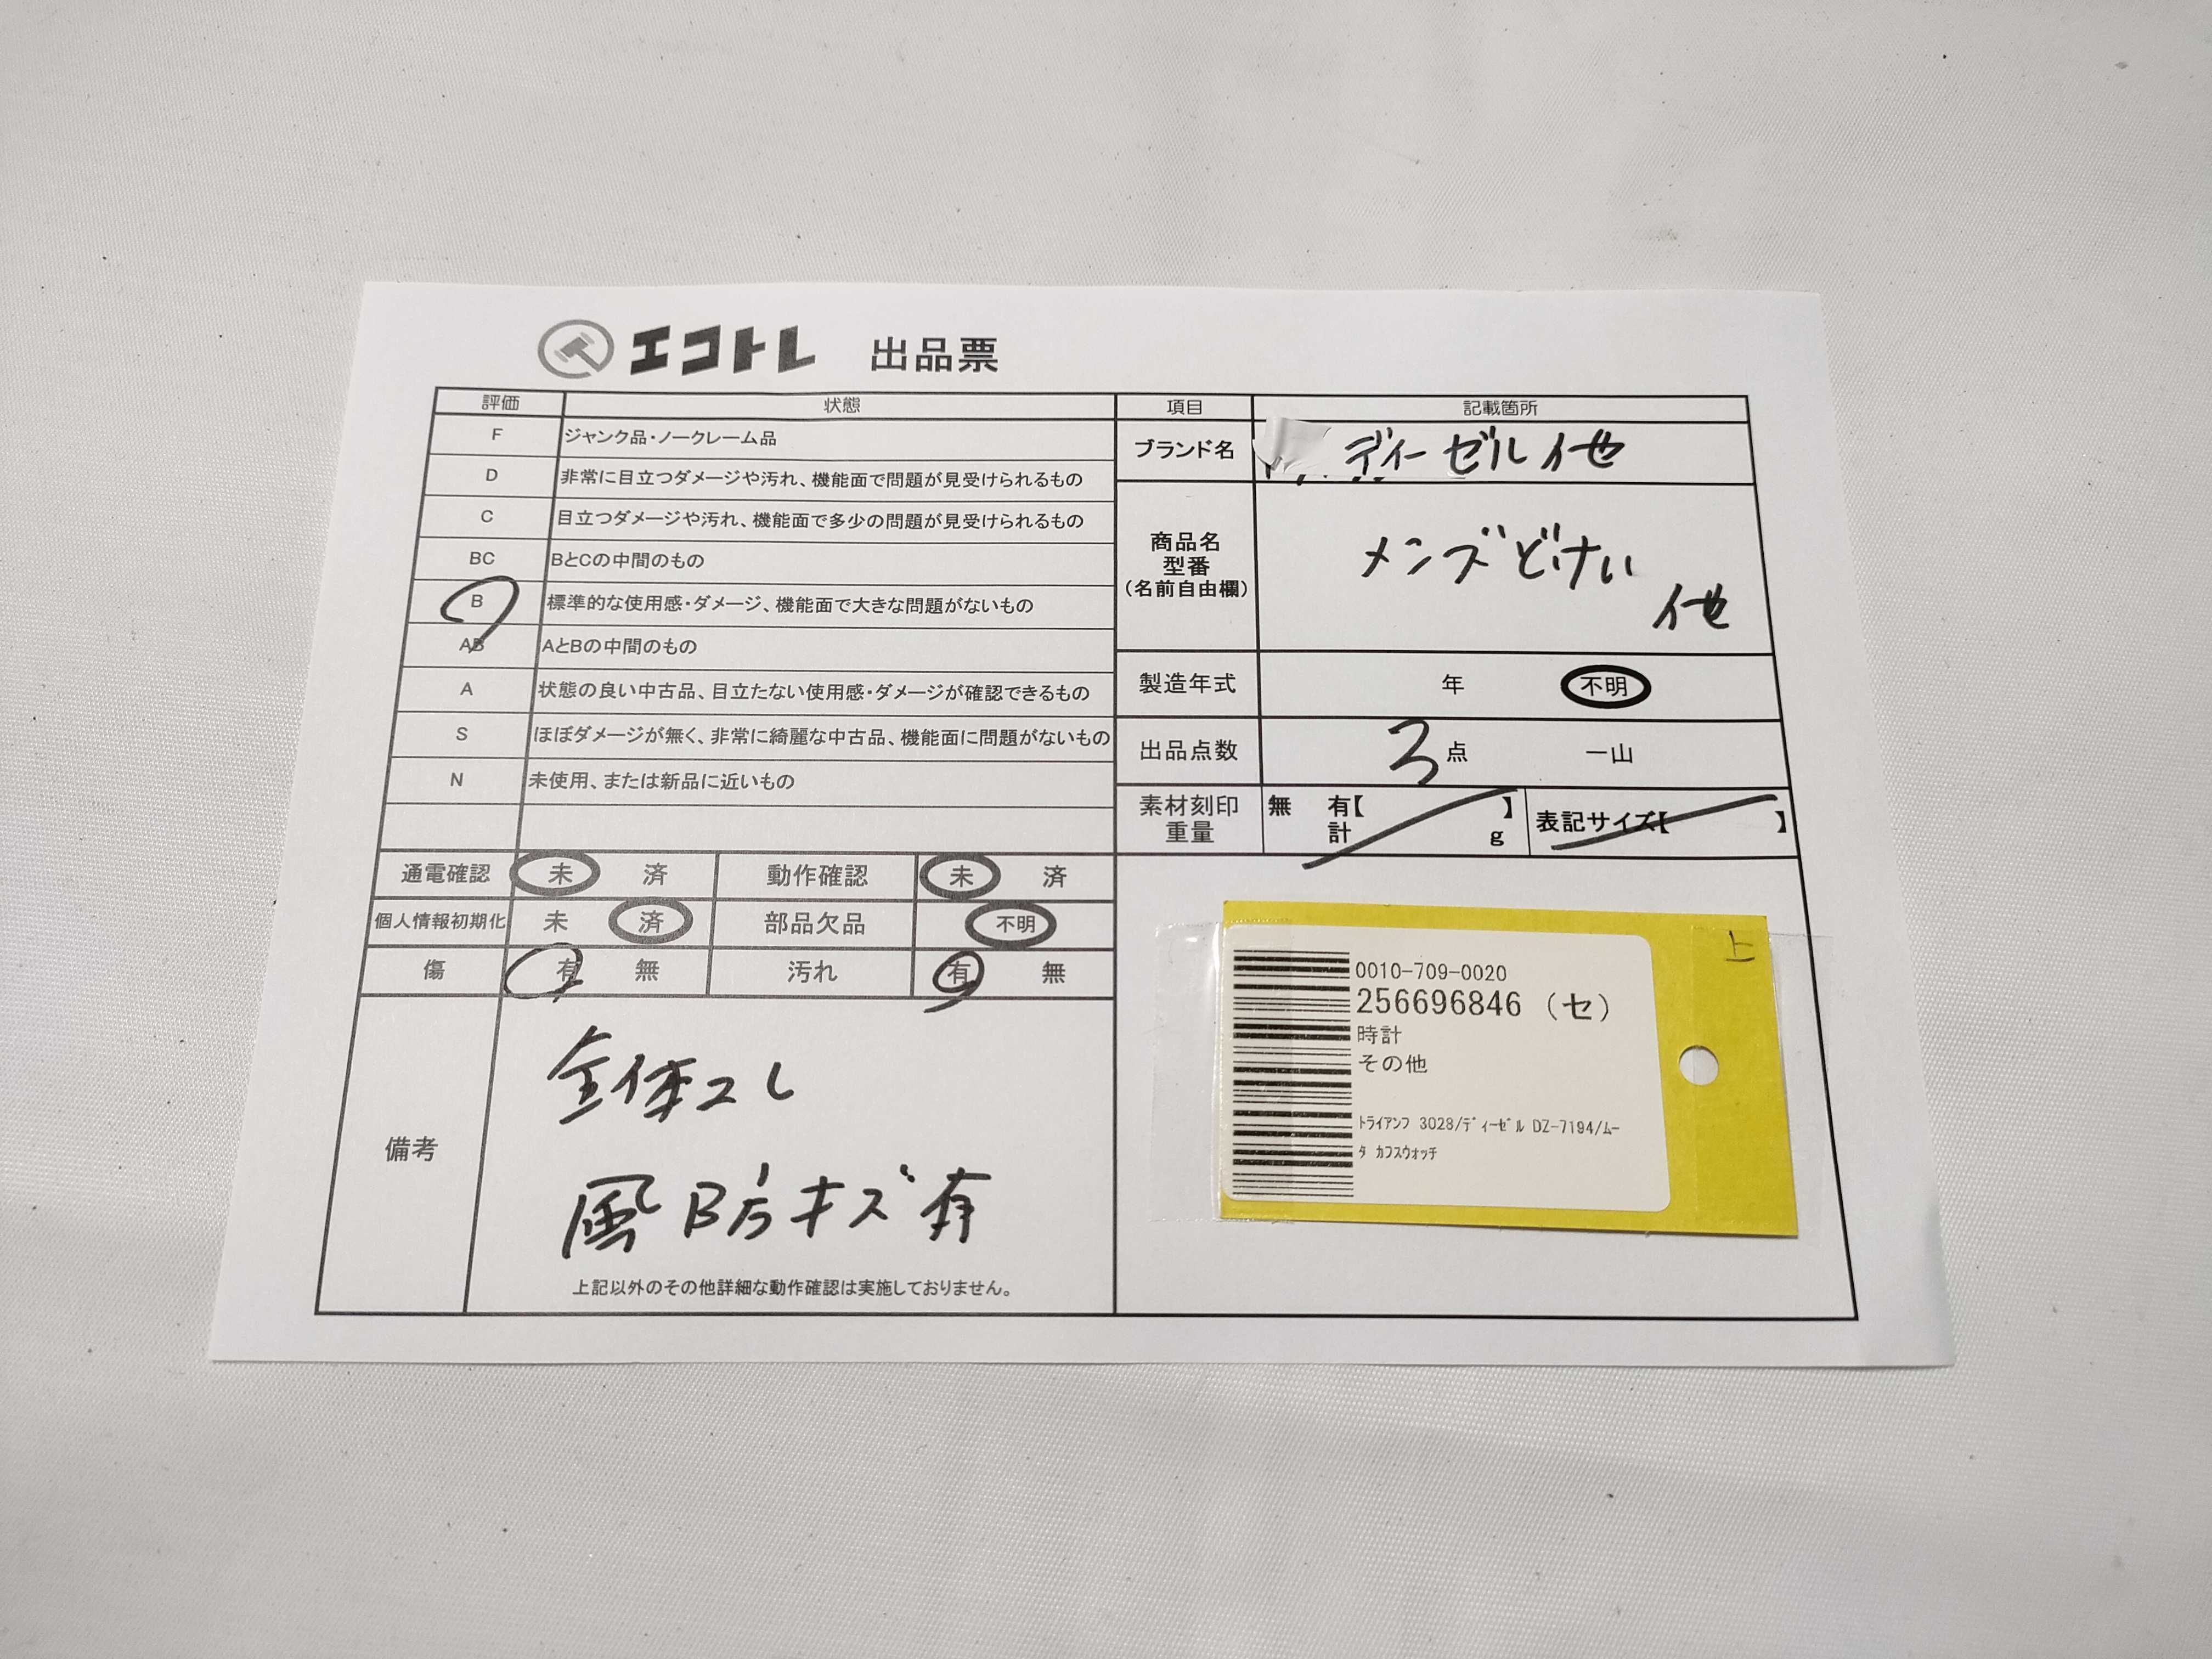 エコトレ 出品票
評価 状態
F ジャンク品・ノークレーム品
D 非常に目立つダメージや汚れ、機能面で問題が見受けられるもの
C 目立つダメージや汚れ、機能面で多少の問題が見受けられるもの
BC BとCの中間のもの
B 標準的な使用感・ダメージ、機能面で大きな問題がないもの
AB AとBの中間のもの
A 状態の良い中古品、目立たない使用感・ダメージが確認できるもの
S ほぼダメージが無く、非常に綺麗な中古品、機能面に問題がないもの
N 未使用、または新品に近いもの
項目 記載箇所
ブランド名 ディーゼル他
商品名
型番
(名前自由欄)
メンズどけい
他
製造年式 年 不明
出品点数 3点 一山
素材刻印 無 有【 】 表記サイズ【 】
重量 計 g
通電確認 未 済 動作確認 未 済
個人情報初期化 未 済 部品欠品 不明
傷 有 無 汚れ 有 無
備考
全体コレ
風B方キズ有
上記以外のその他詳細な動作確認は実施しておりません。
上
0010-709-0020
256696846 (セ)
時計
その他
トライアンフ 3028/ディーゼル DZ-7194/ムー
タ カフスウォッチ